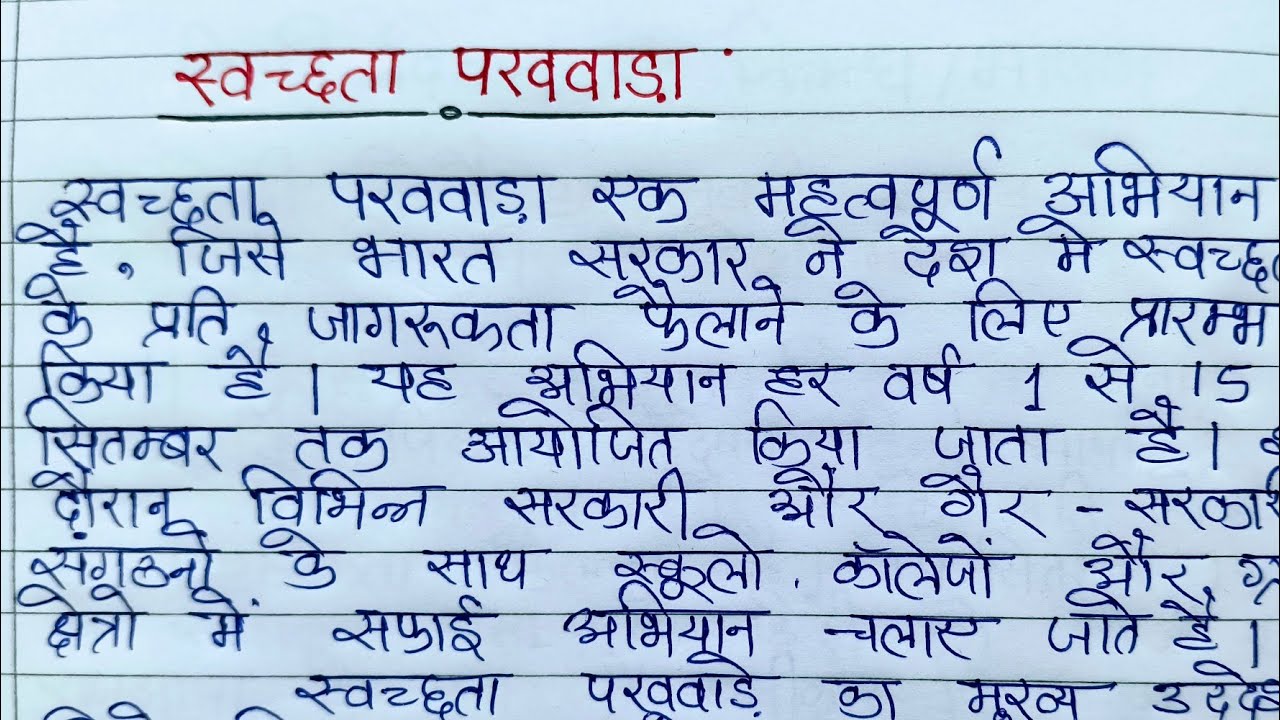 स्वच्छता पखवाड़ा
स्वच्छता पखवाड़ा एक महत्वपूर्ण अभियान
है, जिसे भारत सरकार ने देश मे
के प्रति जागरूकता फैलाने के लिए प्रारम्भ
किया है। यह अभियान हर वर्ष 1 से 15
सितम्बर तक आयोजित किया जाता है।
दौरान विभिन्न सरकारी और गैर - सरकारी
संगठनो के साथ स्कूलो, कॉलेजों और
क्षेत्रो में सफाई अभियान चलाए जाते है।
स्वच्छता पखवाड़े का मुख्य